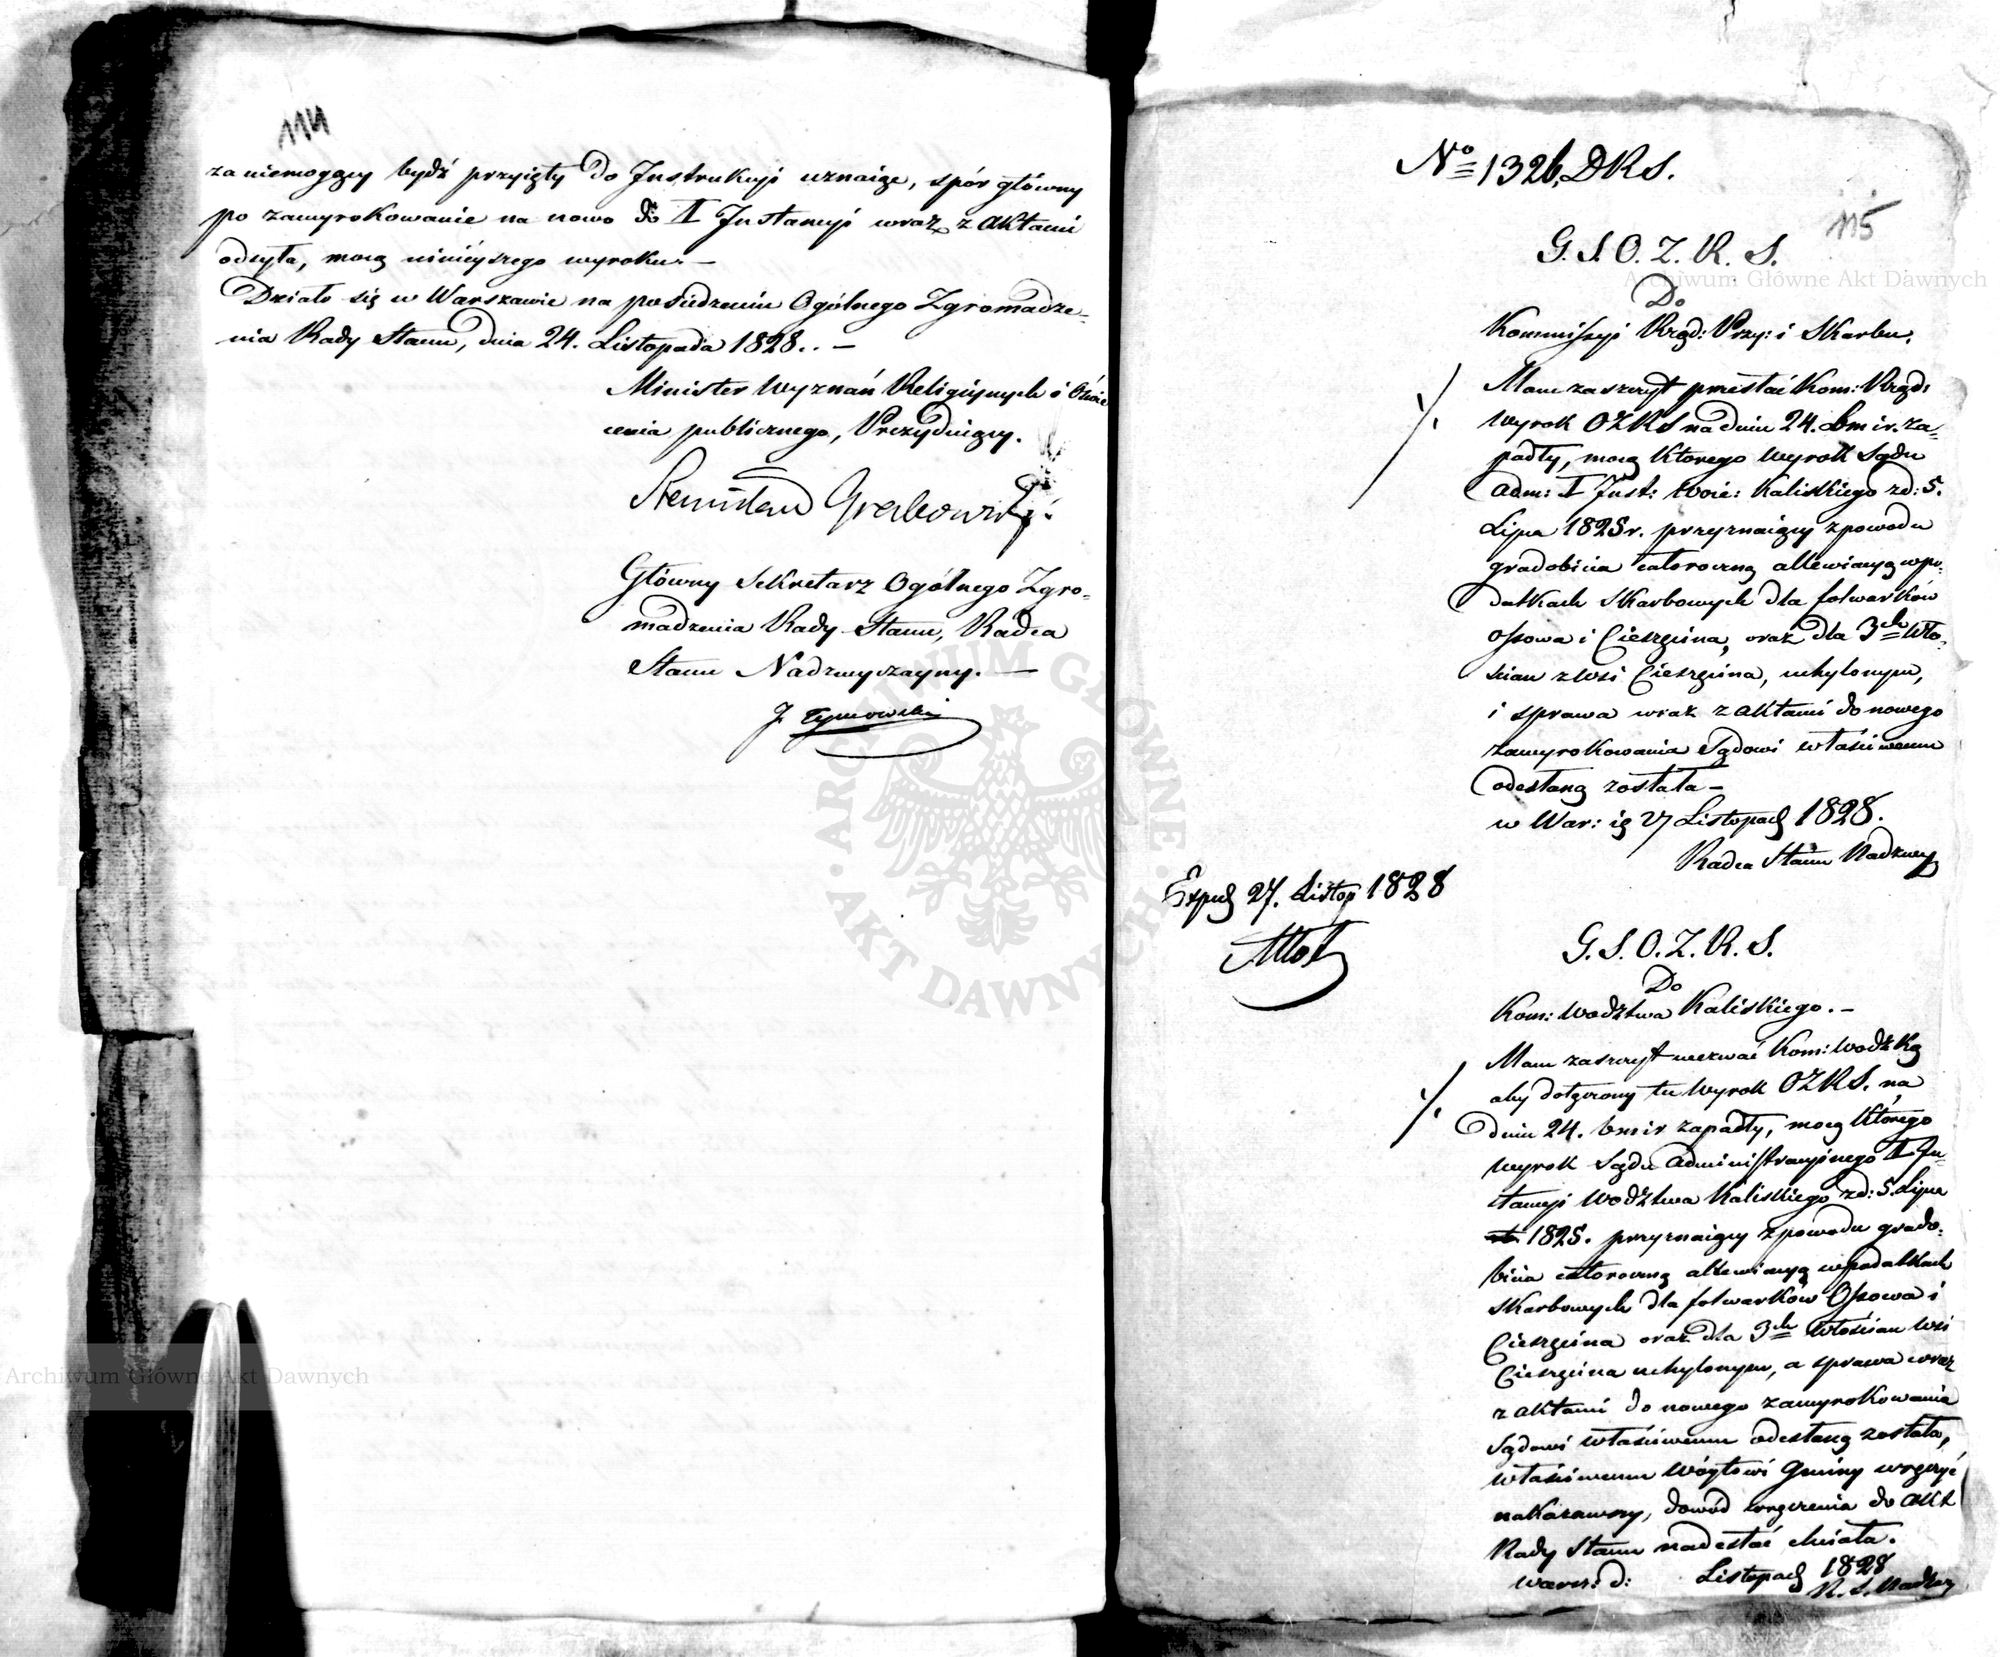 114
za niemogący bydź przyięty do Instrukcji uznaiąc, spór główny
po zawyrokowanie na nowo do I Instancyi wraz z aktami
odsyła, mocą ninieyszego wyroku. —
Działo się w Warszawie na posiedzeniu Ogólnego Zgromadze-
nia Rady Stanu, dnia 24. Listopada 1828.. —
Minister Wyznań Religiynych i Oświe
cenia publicznego, Prezyduiący.
Stanisław Grabowski
Główny Sekretarz Ogólnego Zgro-
madzenia Rady Stanu, Radca
Stanu Nadzwyczayny. —
J. Tymowski
No 1326, DRS.
115
G. S. O. Z. R. S.
Do
Kommissyi Rząd: Przy: i Skarbu.
Mam zaszczyt przesłać Kom: Rząd:
Wyrok OZRS na dniu 24. bm i r. za-
padły, mocą którego Wyrok Sądu
Adm: I Inst: Woie: Kaliskiego z d: 5.
Lipca 1825 r. przyznaiący z powodu
gradobicia całoroczną allewiacyą w po-
datkach Skarbowych dla folwarków
Ossowa i Cieszęcina, oraz dla 3ch Wło-
ścian z Wsi Cieszęcina, uchylonym,
i sprawa wraz z aktami do nowego
zawyrokowania Sądowi właściwemu
odesłaną została —
w War: 27 Listopad 1828.
Radca Stanu Nadzwy
Exped 27. Listop 1828
G. S. O. Z. R. S.
Do
Kom: Wodztwa Kaliskiego. —
Mam zaszczyt wezwać Kom: Wodzką
aby dołączony tu Wyrok OZRS. na
dniu 24. bm i r zapadły, mocą którego
wyrok Sądu Administracyinego I In-
stancyi Wodztwa Kaliskiego z d: 5. Lipca
1825. przyznaiący z powodu grado-
bicia całoroczną allewiacyą w podatkach
Skarbowych dla folwarków Ossowa i
Cieszęcina oraz dla 3ch Włościan Wsi
Cieszęcina uchylonym, a sprawa wraz
z aktami do nowego zawyrokowania
Sądowi właściwemu odesłaną została,
właściwemu Wóytowi Gminy wręczyć
nakazawszy, dowód wręczenia do akt
Rady Stanu nadesłać chciała.
Warsz: d: Listopad 1828
R. S. Nadzwy
Archiwum Główne Akt Dawnych
Archiwum Główne Akt Dawnych
ARCHIWUM GŁÓWNE · AKT DAWNYCH ·